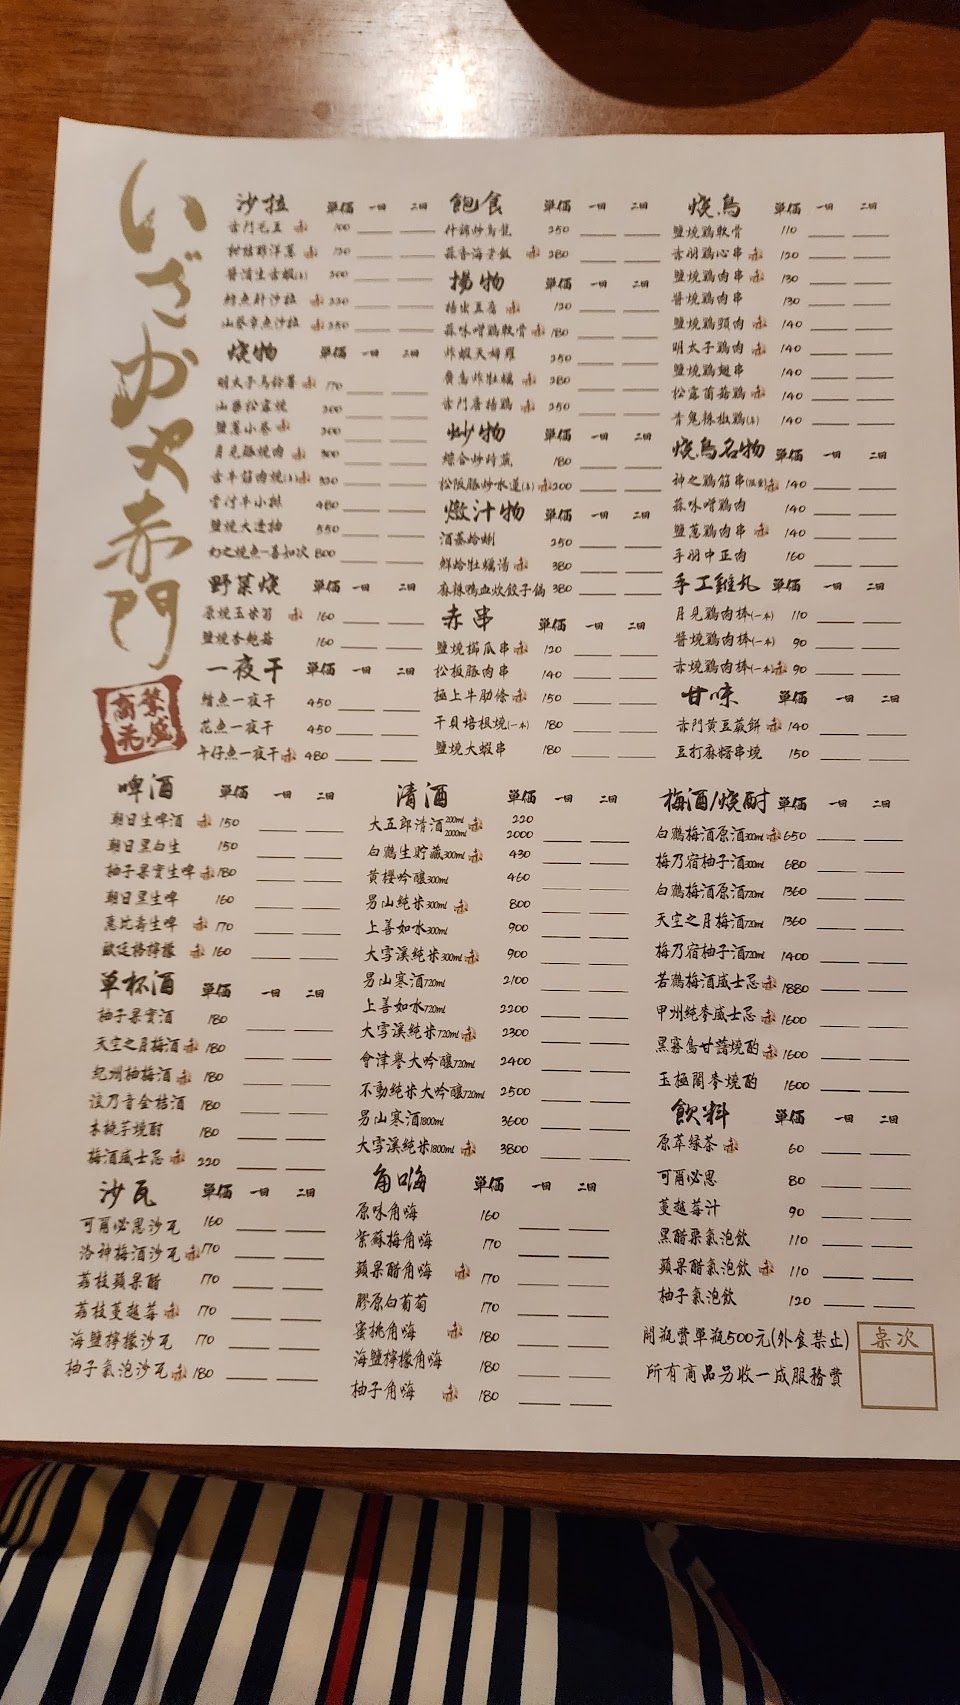 いざかや赤門
商売繁盛
沙拉 単価 一回 二回
赤門毛豆 赤 100
柑桔酢洋蔥 赤 120
醬酒生赤蝦 200
鱈魚肝沙拉 赤 220
山葵章魚沙拉 赤 250
燒物 単価 一回 二回
明太子馬鈴薯 赤 170
山藥松露燒 200
鹽蔥小卷 赤 200
月見豚燒肉 赤 300
赤牛筋肉燒 赤 320
骨付牛小排 480
鹽燒大透抽 550
幻之燒魚-喜知次 800
野菜燒 単価 一回 二回
原燒玉米筍 赤 160
鹽燒杏鮑菇 160
一夜干 単価 一回 二回
鯖魚一夜干 450
花魚一夜干 450
午仔魚一夜干 赤 480
飽食 単価 一回 二回
什錦炒烏龍 250
蒜香海老飯 赤 280
揚物 単価 一回 二回
揚出豆腐 赤 120
蒜味噌鶏軟骨 赤 180
炸蝦天婦羅 250
廣島炸牡蠣 赤 280
赤門唐揚鶏 赤 250
炒物 単価 一回 二回
綜合炒時蔬 180
松阪豚炒水蓮 赤 200
燉汁物 単価 一回 二回
酒蒸蛤蜊 250
鮮蛤牡蠣湯 赤 380
麻辣鴨血炊餃子鍋 380
赤串 単価 一回 二回
鹽燒櫛瓜串 赤 120
松板豚肉串 140
極上牛肋條 赤 150
干貝培根燒(一本) 180
鹽燒大蝦串 180
燒鳥 単価 一回 二回
鹽燒鶏軟骨 110
赤羽鶏心串 赤 120
鹽燒鶏肉串 赤 130
醬燒鶏肉串 130
鹽燒鶏頸肉 赤 140
明太子鶏肉 赤 140
鹽燒鶏翅串 140
松露菌菇鶏 赤 140
青鬼辣椒鶏 140
燒鳥名物 単価 一回 二回
神之鶏筋串(限量) 赤 140
蒜味噌鶏肉 140
鹽蔥鶏肉串 赤 140
手羽中正肉 160
手工雞丸 単価 一回 二回
月見鶏肉棒(一本) 110
醬燒鶏肉棒(一本) 90
赤燒鶏肉棒(一本) 赤 90
甘味 単価 一回 二回
赤門黄豆蕨餅 赤 140
豆打麻糬串燒 150
啤酒 単価 一回 二回
朝日生啤酒 赤 150
朝日黑白生 150
柚子果實生啤 赤 180
朝日黑生啤 160
惠比壽生啤 赤 170
歐廷格檸檬 赤 160
單杯酒 単価 一回 二回
柚子果實酒 180
天空之月梅酒 赤 180
紀州柚梅酒 赤 180
渡乃音金桔酒 180
木桃芋燒酎 180
梅酒威士忌 赤 220
沙瓦 単価 一回 二回
可爾必思沙瓦 160
洛神梅酒沙瓦 赤 170
荔枝蘋果醋 170
荔枝蔓越莓 赤 170
海鹽檸檬沙瓦 170
柚子氣泡沙瓦 赤 180
清酒 単価 一回 二回
大五郎清酒 200ml 2000ml 赤 220 2000
白鶴生貯藏300ml 赤 430
黄櫻吟釀300ml 460
男山純米300ml 赤 800
上善如水300ml 900
大雪溪純米300ml 赤 900
男山寒酒720ml 2100
上善如水720ml 2200
大雪溪純米720ml 赤 2300
會津譽大吟釀720ml 2400
不動純米大吟釀720ml 2500
男山寒酒1800ml 3600
大雪溪純米1800ml 赤 3800
角嗨 単価 一回 二回
原味角嗨 160
紫蘇梅角嗨 170
蘋果醋角嗨 赤 170
膠原白葡萄 170
蜜桃角嗨 赤 180
海鹽檸檬角嗨 180
柚子角嗨 赤 180
梅酒/燒酎 単価 一回 二回
白鶴梅酒原酒300ml 赤 650
梅乃宿柚子酒300ml 680
白鶴梅酒原酒720ml 1360
天空之月梅酒720ml 1360
梅乃宿柚子酒720ml 1400
若鶴梅酒威士忌 赤 1880
甲州純麥威士忌 赤 1600
黑霧島甘藷燒酌 赤 1600
玉極閣麥燒酌 1600
飲料 単価 一回 二回
原萃綠茶 赤 60
可爾必思 80
蔓越莓汁 90
黑醋栗氣泡飲 110
蘋果醋氣泡飲 赤 110
柚子氣泡飲 120
開瓶費單瓶500元(外食禁止)
所有商品另收一成服務費
桌次